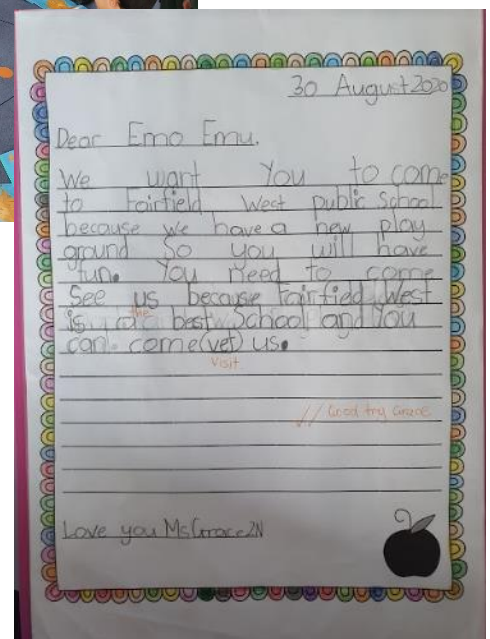 30 August 2020
Dear Emo Emu.
We want You to come
to Fairfield West public School
because we have a new play
ground so you will have
fun. You need to come
See us because Fairfield West
the
is a best School and You
can come (vet) us.
visit
// Good try Grace
Love you Ms Grace 2N